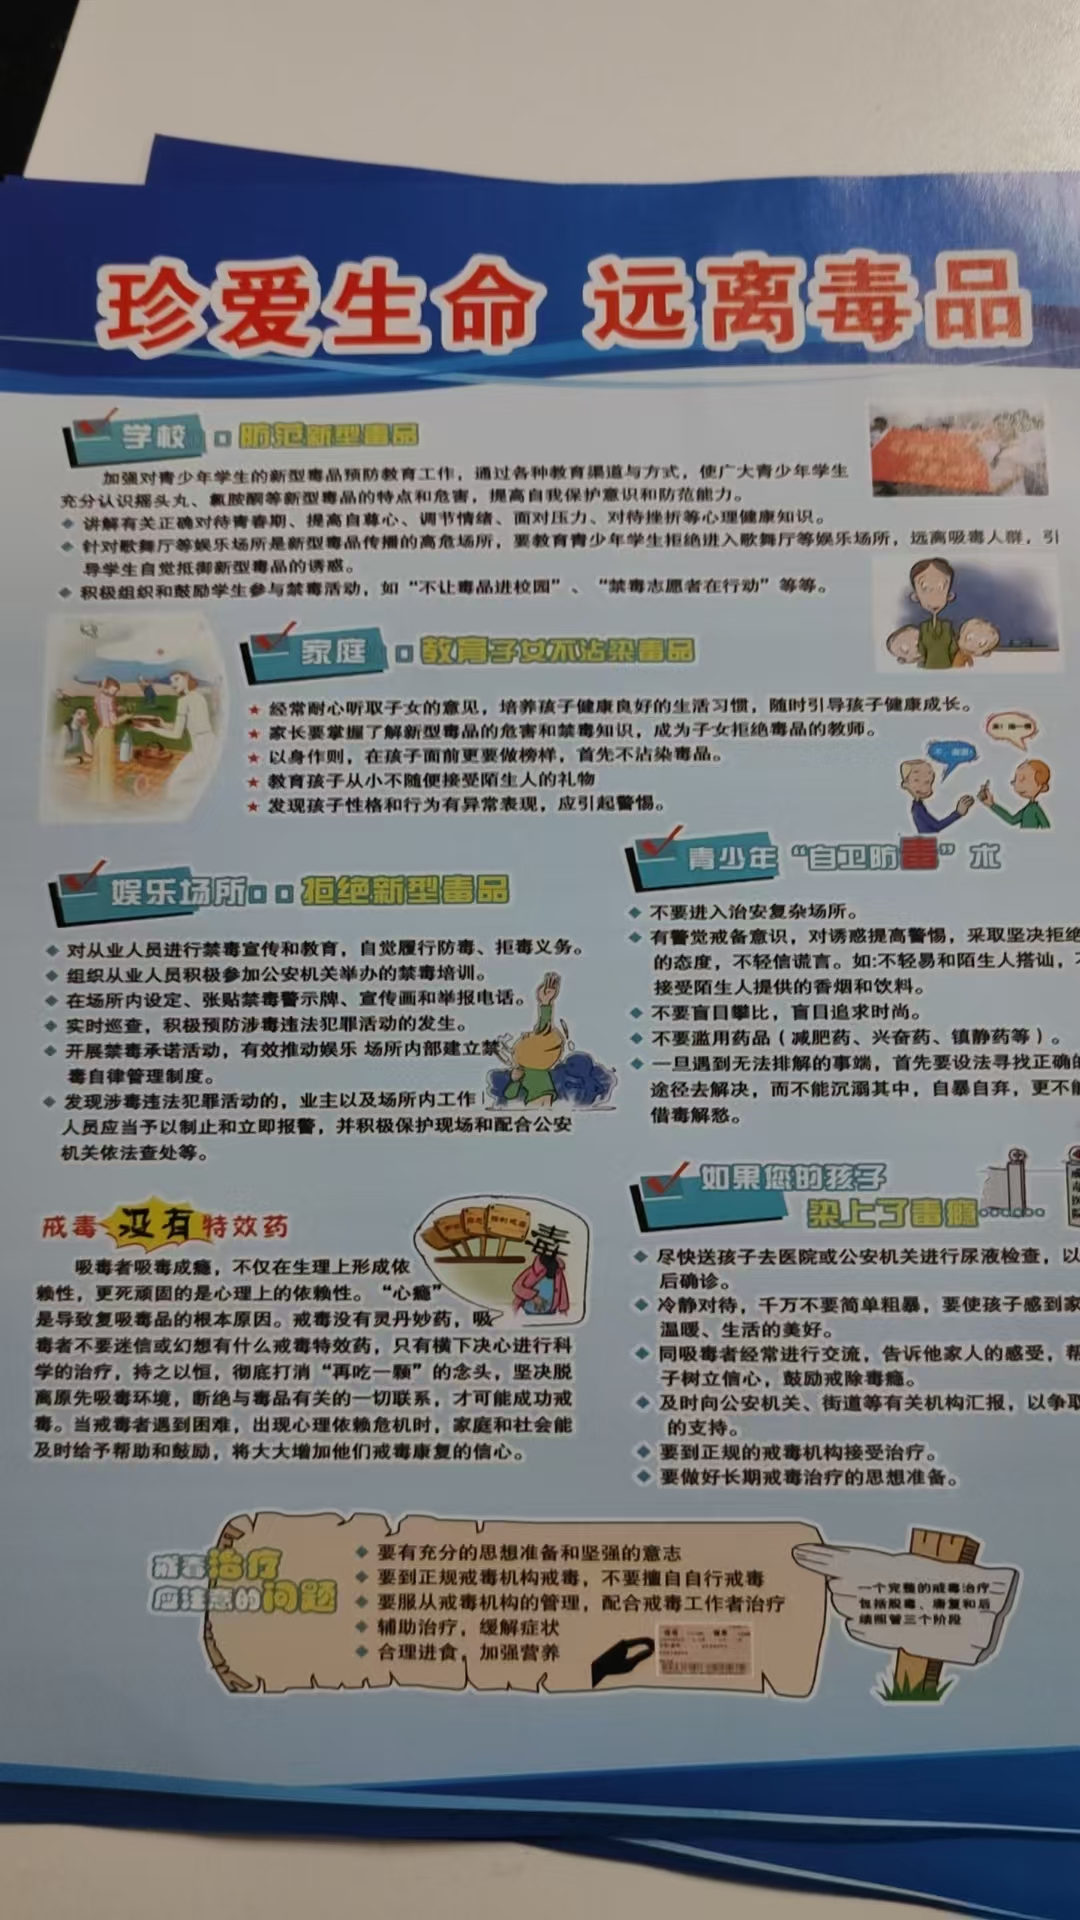 珍爱生命 远离毒品
学校 防范新型毒品
加强对青少年学生的新型毒品预防教育工作，通过各种教育渠道与方式，使广大青少年学生
充分认识摇头丸、氯胺酮等新型毒品的特点和危害，提高自我保护意识和防范能力。
讲解有关正确对待青春期、提高自尊心、调节情绪、面对压力、对待挫折等心理健康知识。
针对歌舞厅等娱乐场所是新型毒品传播的高危场所，要教育青少年学生拒绝进入歌舞厅等娱乐场所，远离吸毒人群，引
导学生自觉抵御新型毒品的诱惑。
积极组织和鼓励学生参与禁毒活动，如“不让毒品进校园”、“禁毒志愿者在行动”等等。
家庭 教育子女不沾染毒品
★ 经常耐心听取子女的意见，培养孩子健康良好的生活习惯，随时引导孩子健康成长。
★ 家长要掌握了解新型毒品的危害和禁毒知识，成为子女拒绝毒品的教师。
★ 以身作则，在孩子面前更要做榜样，首先不沾染毒品。
★ 教育孩子从小不随便接受陌生人的礼物
★ 发现孩子性格和行为有异常表现，应引起警惕。
娱乐场所 拒绝新型毒品
对从业人员进行禁毒宣传和教育，自觉履行防毒、拒毒义务。
组织从业人员积极参加公安机关举办的禁毒培训。
在场所内设定、张贴禁毒警示牌、宣传画和举报电话。
实时巡查，积极预防涉毒违法犯罪活动的发生。
开展禁毒承诺活动，有效推动娱乐 场所内部建立禁
毒自律管理制度。
发现涉毒违法犯罪活动的，业主以及场所内工作
人员应当予以制止和立即报警，并积极保护现场和配合公安
机关依法查处等。
青少年“自卫防毒”术
不要进入治安复杂场所。
有警觉戒备意识，对诱惑提高警惕，采取坚决拒绝
的态度，不轻信谎言。如:不轻易和陌生人搭讪，
接受陌生人提供的香烟和饮料。
不要盲目攀比，盲目追求时尚。
不要滥用药品（减肥药、兴奋药、镇静药等）。
一旦遇到无法排解的事端，首先要设法寻找正确的
途径去解决，而不能沉溺其中，自暴自弃，更不能
借毒解愁。
戒毒没有特效药
吸毒者吸毒成瘾，不仅在生理上形成依
赖性，更死顽固的是心理上的依赖性。“心瘾”
是导致复吸毒品的根本原因。戒毒没有灵丹妙药，吸
毒者不要迷信或幻想有什么戒毒特效药，只有横下决心进行科
学的治疗，持之以恒，彻底打消“再吃一颗”的念头，坚决脱
离原先吸毒环境，断绝与毒品有关的一切联系，才可能成功戒
毒。当戒毒者遇到困难，出现心理依赖危机时，家庭和社会能
及时给予帮助和鼓励，将大大增加他们戒毒康复的信心。
毒
如果您的孩子
染上了毒瘾……
尽快送孩子去医院或公安机关进行尿液检查，以
后确诊。
冷静对待，千万不要简单粗暴，要使孩子感到家
温暖、生活的美好。
同吸毒者经常进行交流，告诉他家人的感受，帮
子树立信心，鼓励戒除毒瘾。
及时向公安机关、街道等有关机构汇报，以争取
的支持。
要到正规的戒毒机构接受治疗。
要做好长期戒毒治疗的思想准备。
戒毒治疗
应注意的问题
要有充分的思想准备和坚强的意志
要到正规戒毒机构戒毒，不要擅自自行戒毒
要服从戒毒机构的管理，配合戒毒工作者治疗
辅助治疗，缓解症状
合理进食，加强营养
一个完整的戒毒治疗
包括脱毒、康复和后
续照管三个阶段